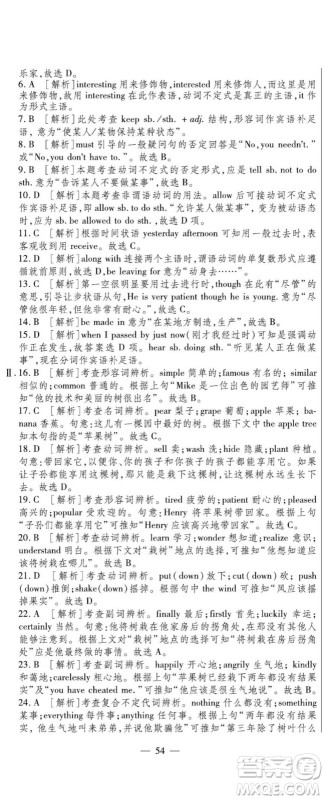 乐家。故选 D。
6. A [解析]interesting 用来修饰物，interested 用来修饰人，而这里是用来修饰物，故用 interesting 在此作表语，动词不定式是真正的主语，it 作为形式主语。
7. B [解析]此处考查 keep sb. /sth. +adj. 结构，形容词作宾语补足语，意为“使某人/某物保持某种状态”。故选 B。
8. D [解析]must 引导的一般疑问句的否定回答是“No, you needn't.”或“No, you don't have to.”。故选 D。
9. B [解析]本题考查动词不定式的否定形式，应是 tell sb. not to do sth. 意为“告诉某人不要做某事”。故选 B。
10. D [解析]本题考查非谓语动词的用法。allow 后接动词不定式作宾语补足语，即 allow sb. to do sth. “允许某人做某事”，变为被动语态时，应为 sb. be allowed to do sth. “某人被允许做某事”。
11. C [解析]根据时间状语 yesterday afternoon 可知用过去时，表客观收到用 receive。故选 C。
12. A [解析]along with 连接两个主语时，谓语动词的单复数形式依据前面的主语而定，be leaving for 意为“动身去……”。
13. C [解析]第一空很明显要用过去进行时，后一空由于有“尽管”的意思，引导让步状语从句，He is very patient though he is young. “尽管他很年轻，但他非常有耐心。”故选 C。
14. B [解析]be made in 意为“在某地方制造，生产”。故选 B。
15. D [解析]when I passed by just now（刚才我经过时）可知是强调动作正在发生，故该填 D。hear sb. doing sth. “听见某人正在做某事”，现在分词作宾语补足语。
Ⅱ. 16. B [解析]考查形容词辨析。simple 简单的；famous 有名的；similar 相似的；common 普通的。根据上句“Mike 是一位出色的园艺师”可推知“他的技术和美丽的树很出名”。故选 B。
17. C [解析]考查名词辨析。pear 梨子；grape 葡萄；apple 苹果；banana 香蕉。句意：他有一棵因中最好的树。根据下文中的 the apple tree 知本句指的是“苹果树”。故选 C。
18. D [解析]考查动词辨析。sell 卖；wash 洗；hide 隐藏；plant 种植。句意：带回家它，以便你、你的孩子和你孩子的孩子都能享用它。如果让子孙都能享用它，就要把这棵树带回家栽上，让这棵树永远生长下去。故选 D。
19. C [解析]考查形容词辨析。tired 疲劳的；patient 耐心的；pleased 高兴的；popular 受欢迎的。句意：Henry 将苹果树带回家。根据上句“子孙们都能享用它”可推知“Henry 应该高兴地带着苹果树回家”。故选 C。
20. B [解析]考查动词辨析。learn 学习；wonder 想知道；realize 意识到；understand 明白。根据下文对“栽树”的描述，可知他想知道应该将树栽在哪儿。故选 B。
21. D [解析]考查动词辨析。put (down) 放下；cut (down) 砍下；push (down) 推倒；shake(down) 摇下。根据句中的 the wind 可推“风应该摇掉果实”。故选 D。
22. A [解析]考查副词辨析。finally 最后；firstly 首先；luckily 幸运；certainly 当然了。句意：最后，他将树栽在他家房后的拐角处。根据上文“他不知道该将树栽在哪儿”可推知“最后将树栽在房后拐角处”。故选 A。
23. B [解析]考查副词辨析。happily 开心地；angrily 生气地；kindly 和蔼地；carelessly 粗心地。根据上句“苹果树已经两年都没有结果”及下句“you have cheated me.”可推知“他很生气地说”。故选 B。
24. B [解析]考查复合不定代词辨析。nothing 没事；something 某事；everything 每件事；anything 任何事。根据上句“两年都没有结果，他生气地叫来弟弟，并说他欺骗他”可知“第三年除了树叶什么
— 54 —